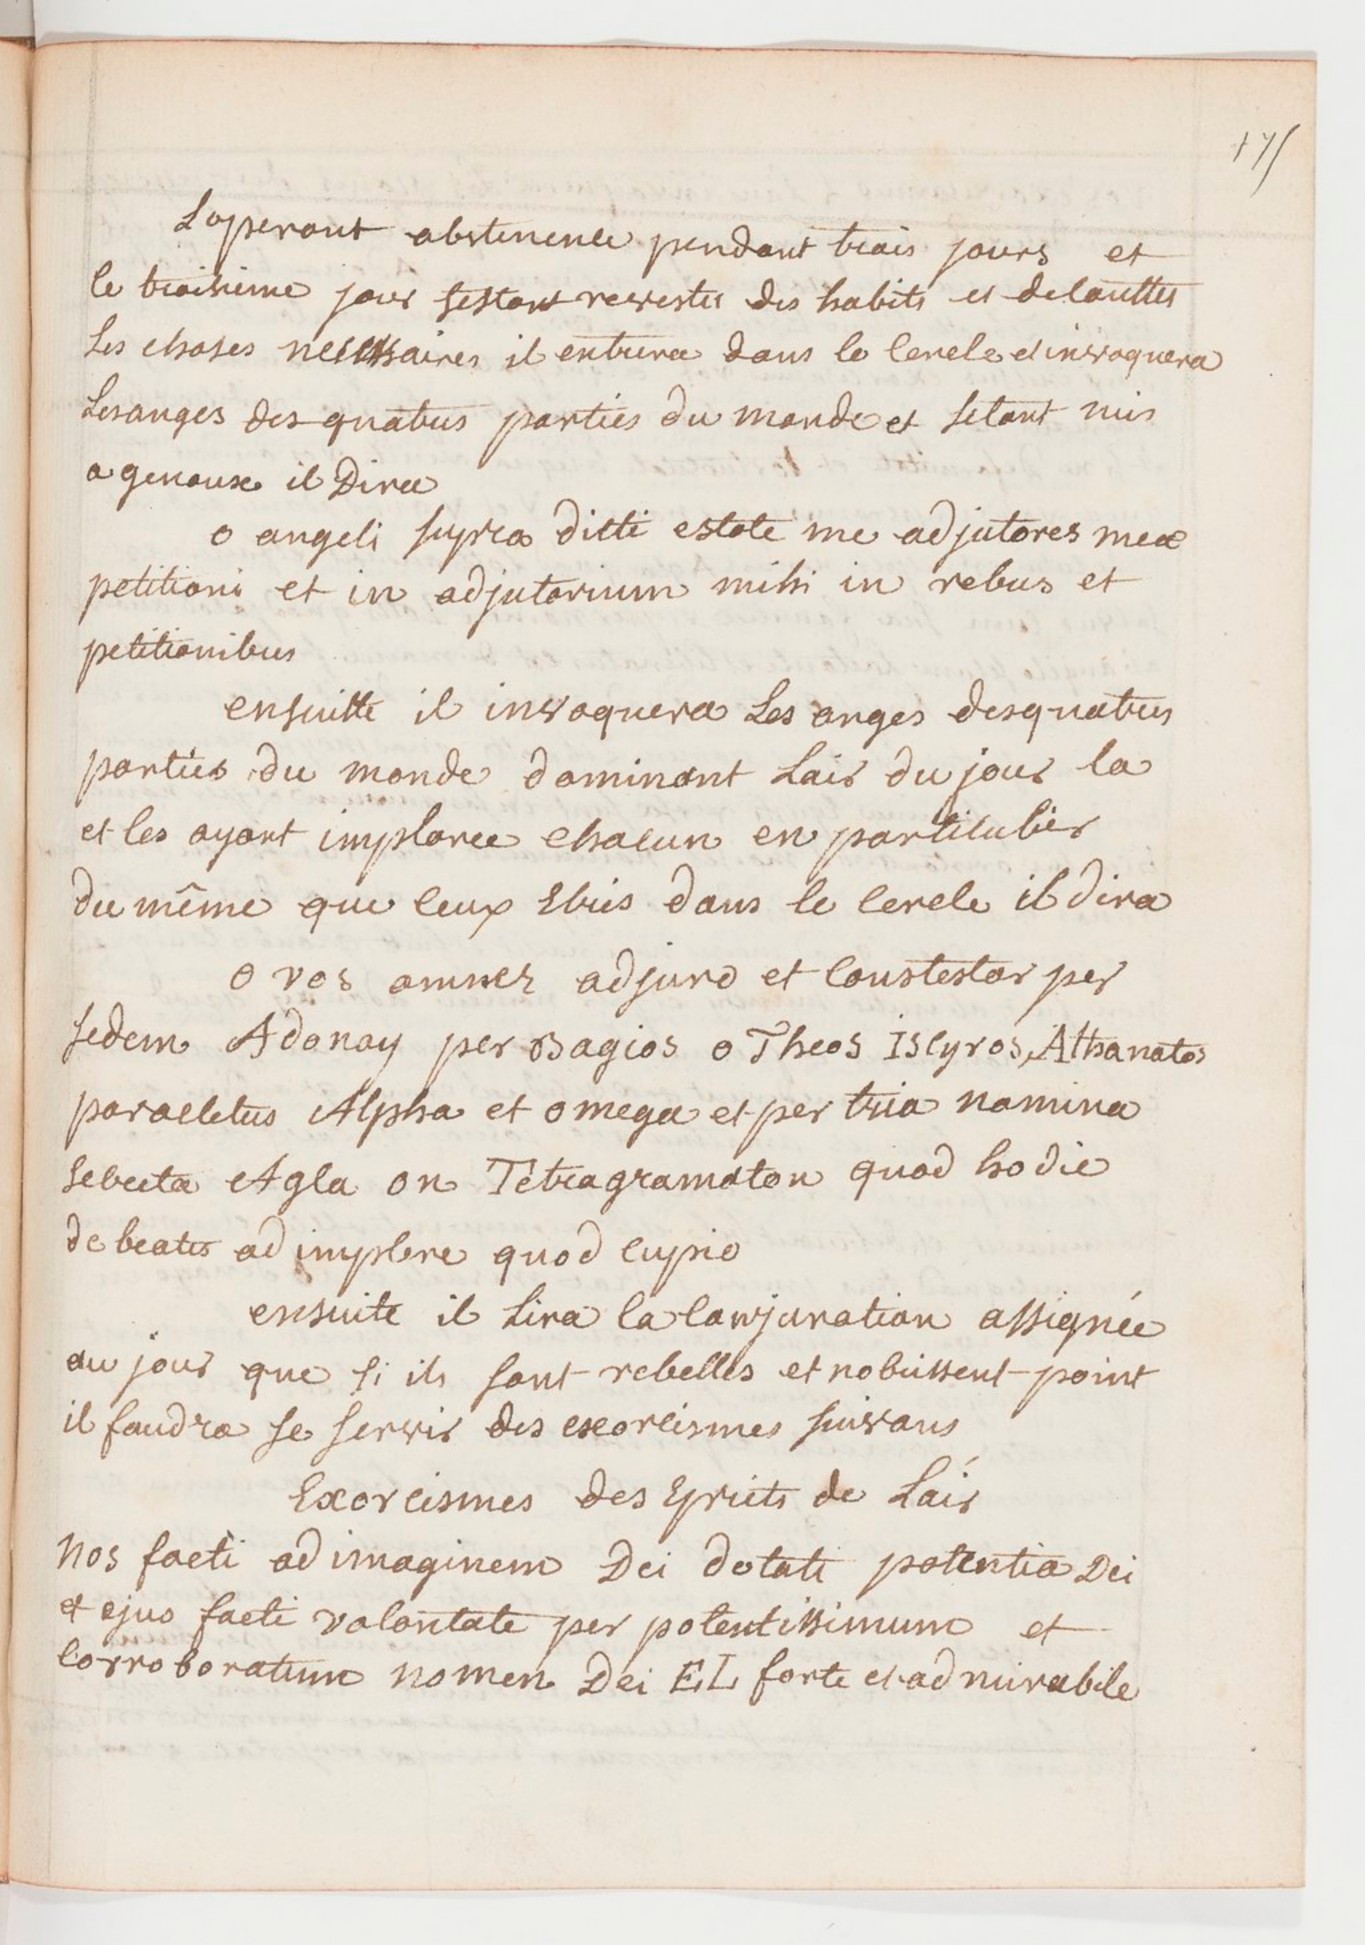 175
Loperant abstinence pendant trois jours et
le troisieme jour sestant revestu des habits et de touttes
Les choses necessaires il entrera dans le Cercle et invoquera
Les anges des quatres parties du monde et setant mis
a genoux il Dira
o angeli supra dicti estote me adjutores meæ
petitioni et in adjutorium mihi in rebus et
petitionibus
ensuitte il invoquera Les anges des quatres
parties du monde dominant Lair du jour la
et les ayant imploree chacun en particulier
du même que ceux Ebris dans le Cercle il dira
o vos omnes adjuro et Constestor per
sedem Adonay per Hagios o Theos Iscyros, Athanatos
paracletus Alpha et omega et per tria nomina
secreta Agla on Tetragramaton quod hodie
debeatis adimplere quod Cupio
ensuite il Lira la Conjuration assignée
au jour que si ils sont rebelles et nobeissent point
il faudra se servir des exorcismes suivans
Exorcismes des Epriets de Lair
Nos facti ad imaginem Dei dotati potentia Dei
et ejus facti volontate per potentissimum et
Corroboratum nomen Dei EL forte et admirabile